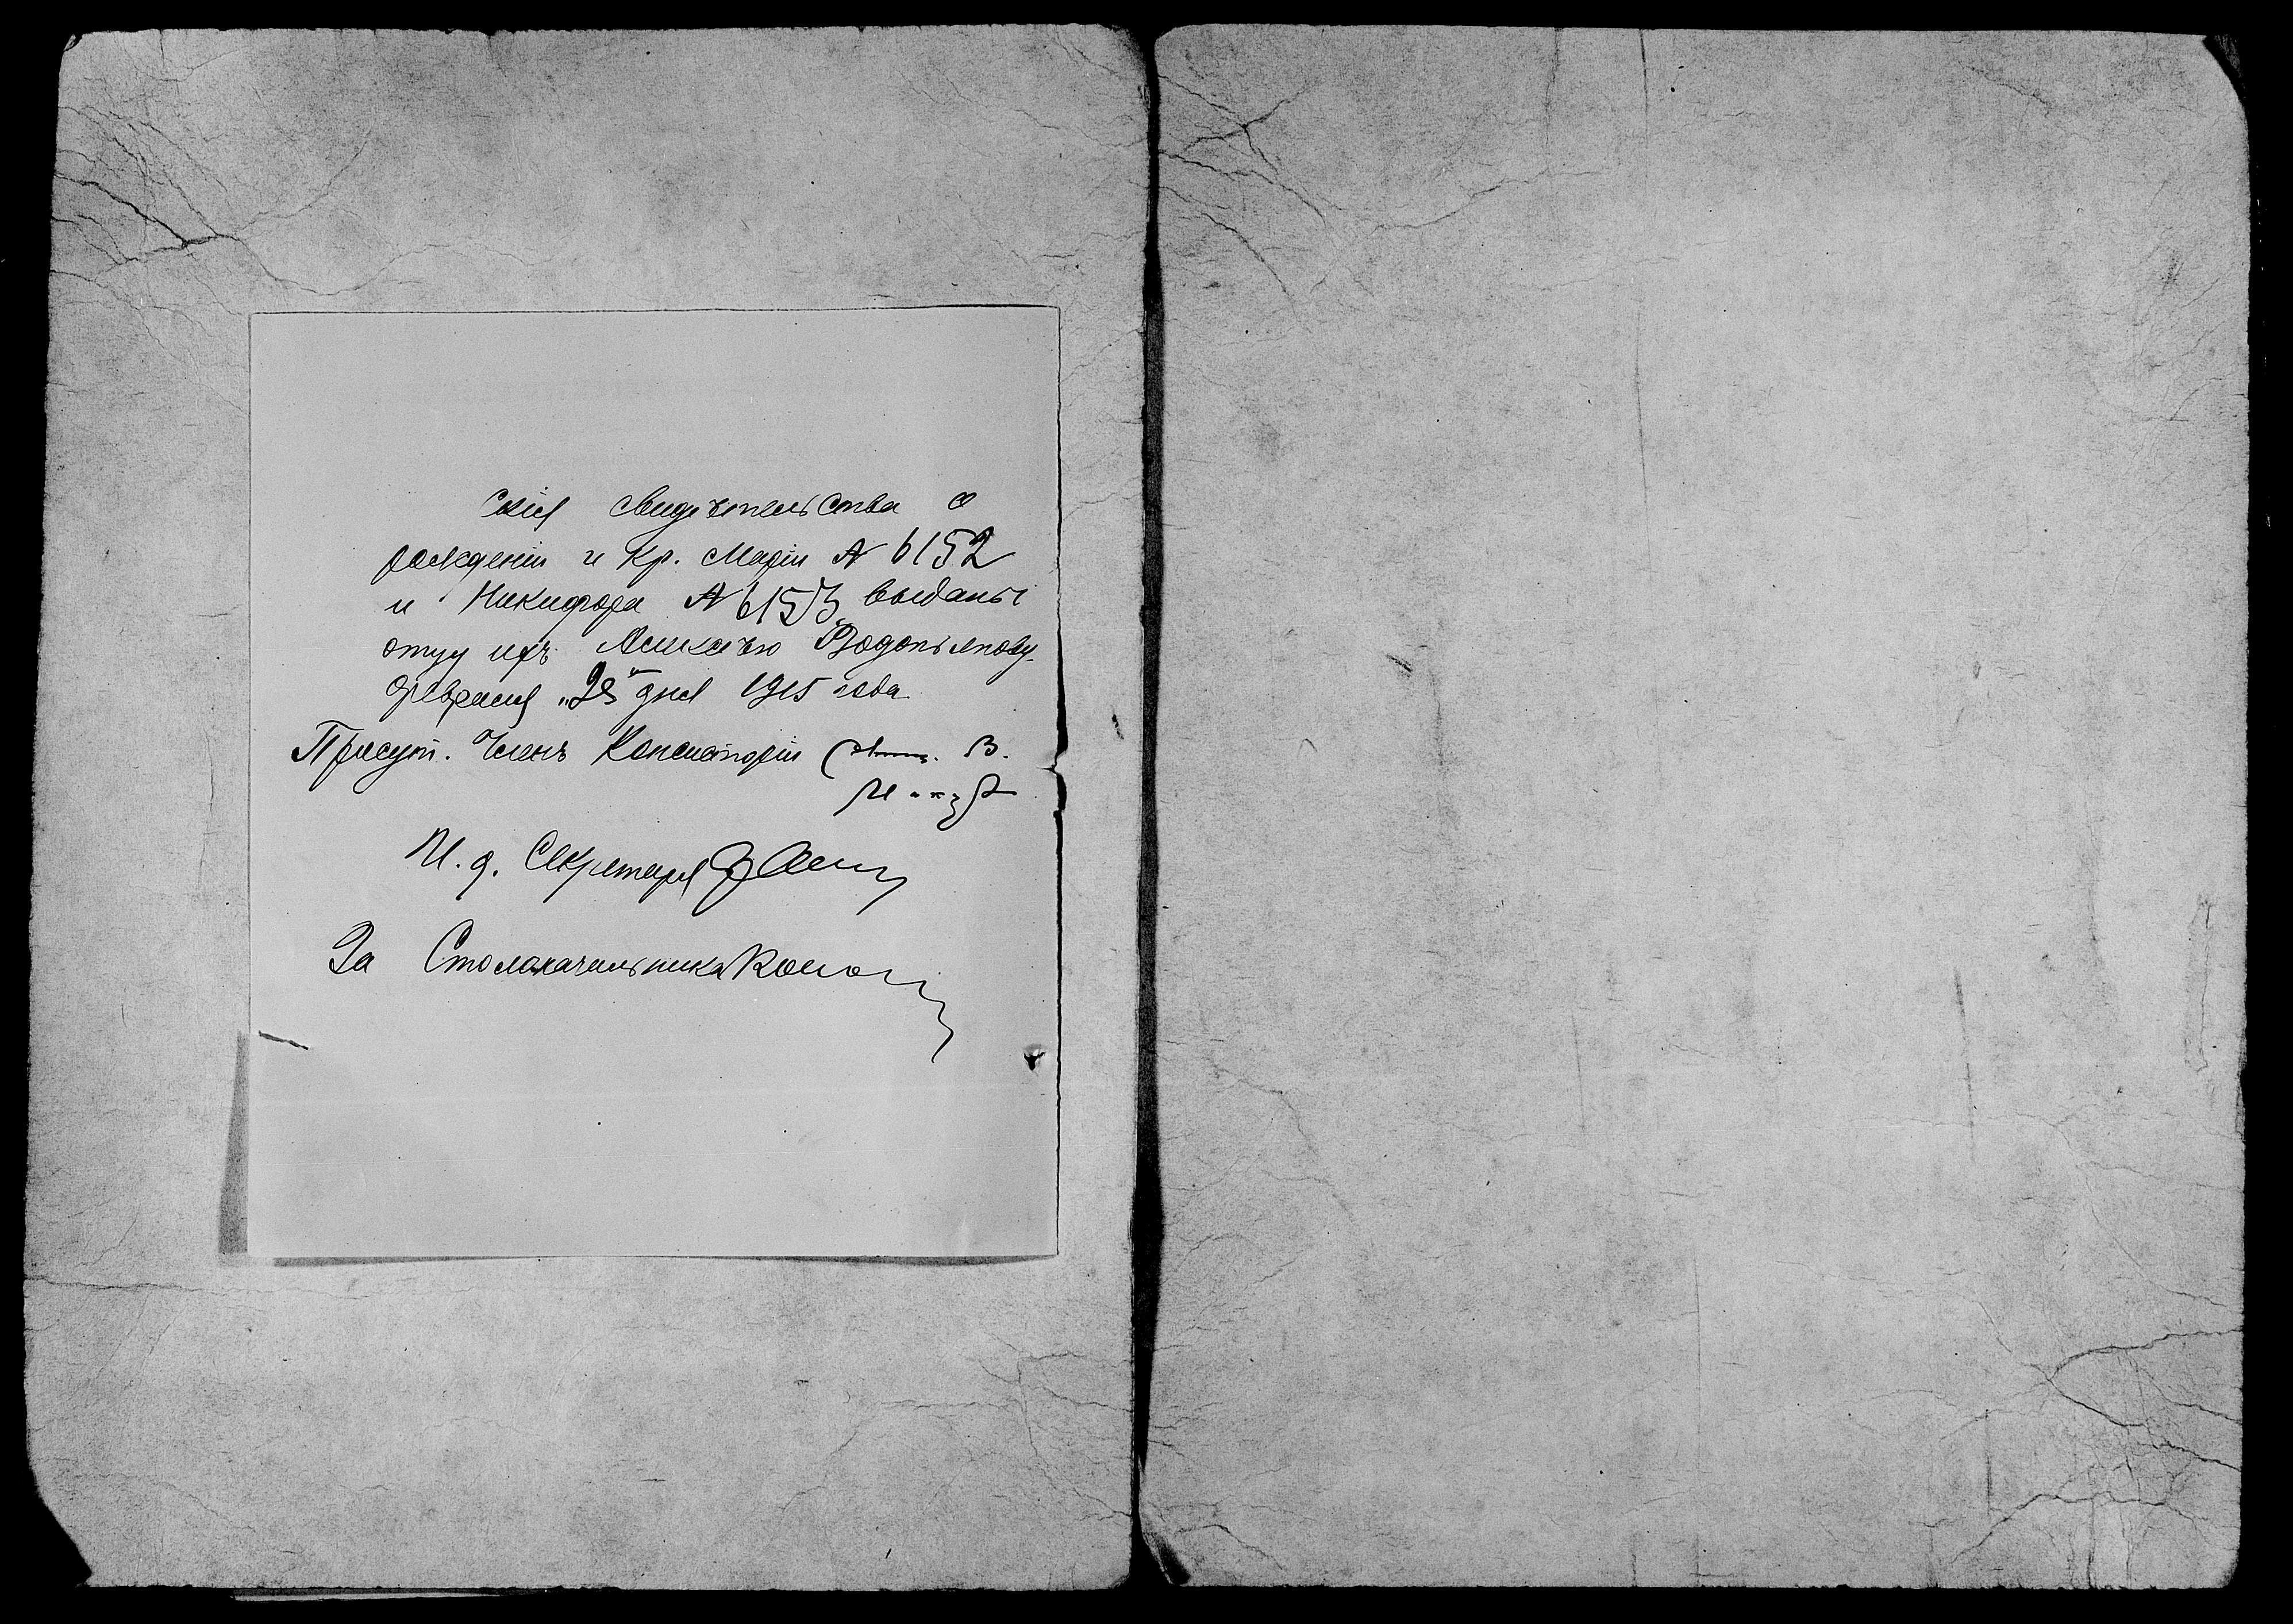 скія свидѣтельства о
рожденіи и кр. Маріи № 6152
и Никифора № 6153 выданы
отцу ихъ Алексѣю Водопьянову
Февраля „28" дня 1915 года
Присут. Членъ Консисторіи В.
И. д. Секретаря
За Столоначальника